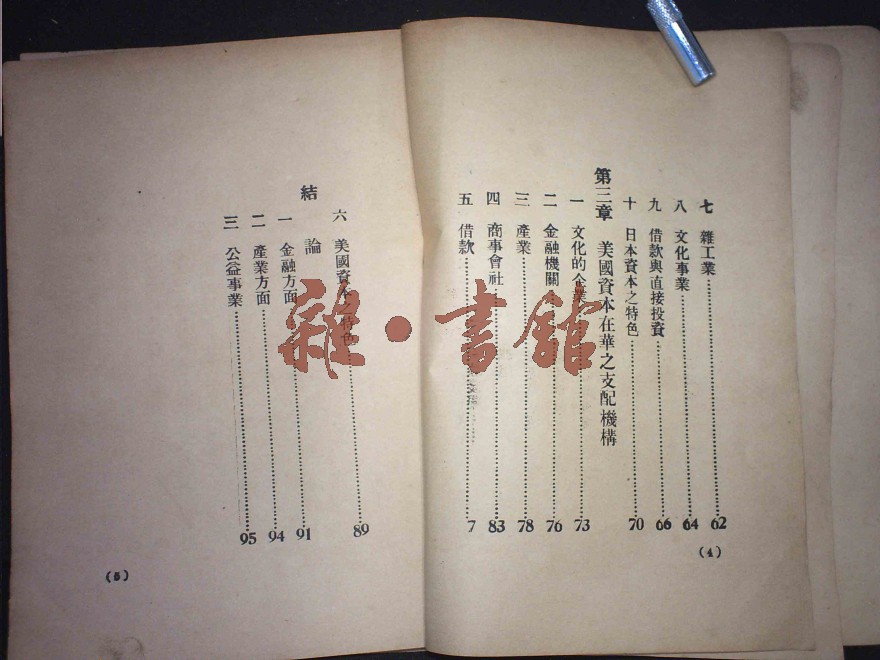 七 雜工業 62
八 文化事業 64
九 借款與直接投資 66
十 日本資本之特色 70
第三章 美國資本在華之支配機構
一 文化的企業 73
二 金融機關 76
三 產業 78
四 商事會社 83
五 借款 7
(4)
六 美國資本之特色 89
結 論
一 金融方面 91
二 產業方面 94
三 公益事業 95
(5)
雜·書館